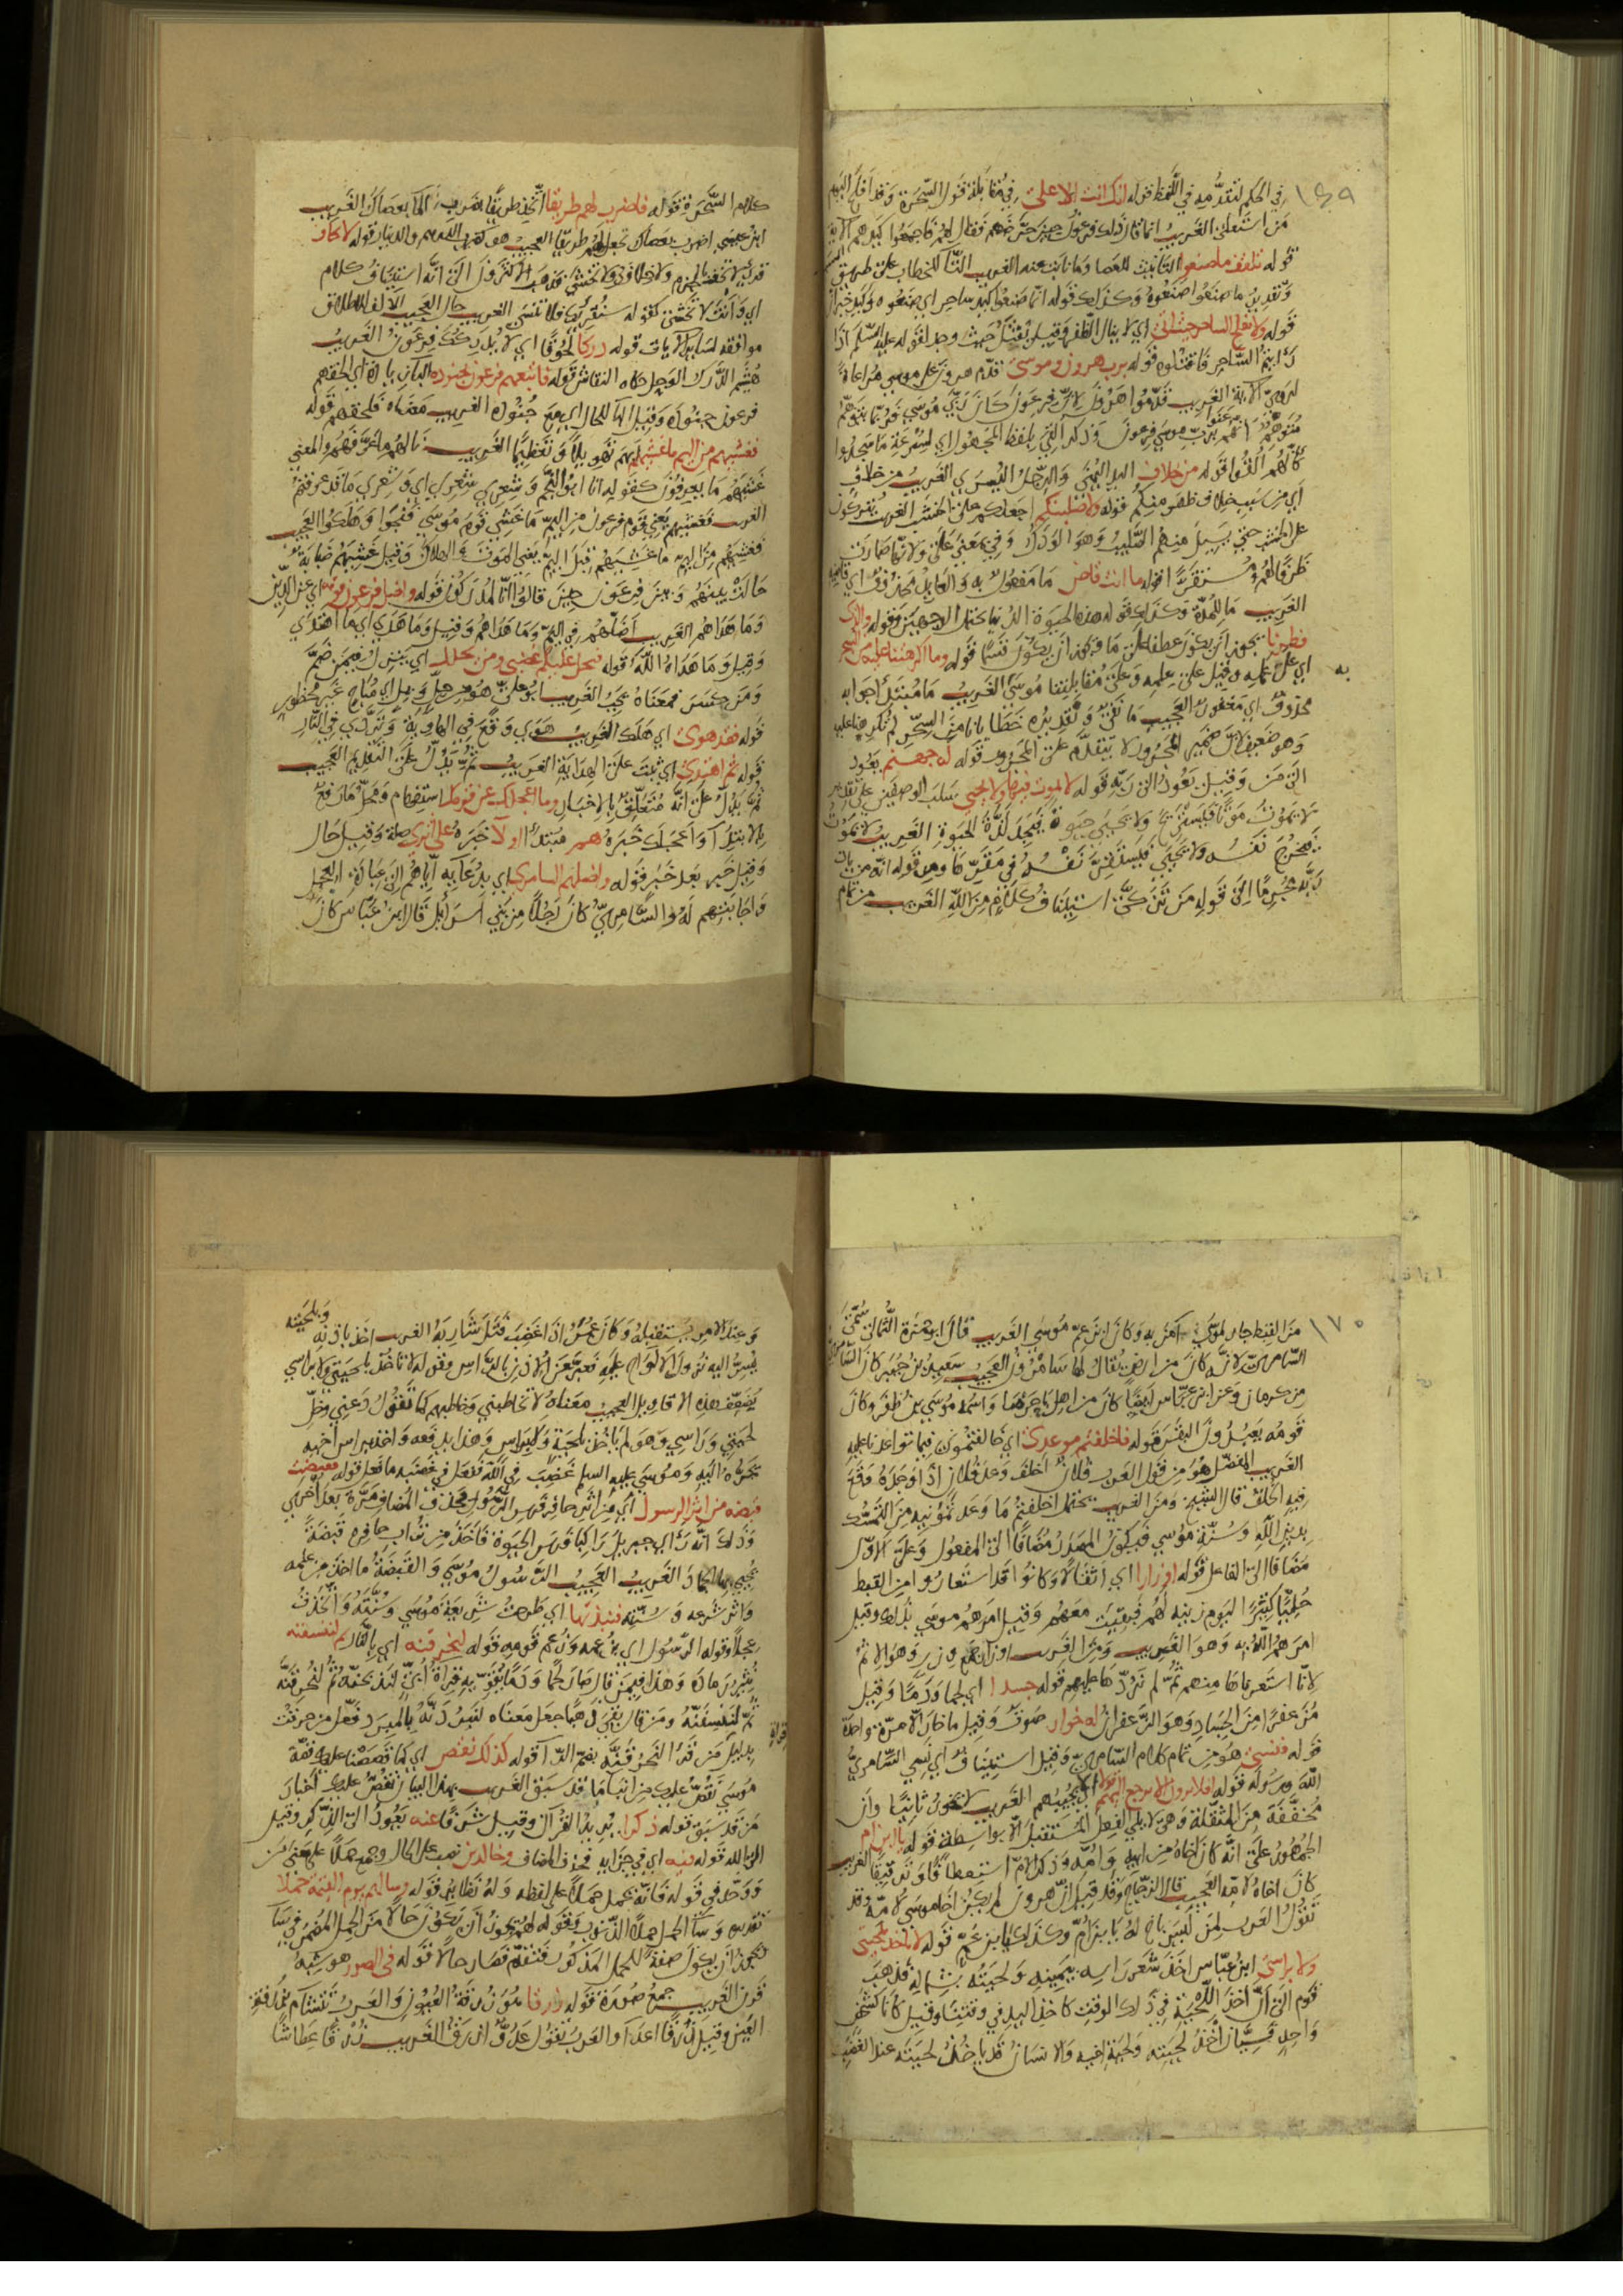 ١٦٩
في الحكم لتقدمه في اللفظ قوله انك انت الاعلى في مقابلة قول السحرة وقد افلح اليوم
من استعلى الغريب انما قال ذلك فرعون حين حرضهم فقال لهم فاجمعوا كيدكم الآية
قوله تلقف ما صنعوا التانيث للعصا وما نابت عنه الغريب التا للخطاب على طريق
وتقديره ما صنعوا صنعوه وكذلك قوله انما صنعوا كيد ساحر اي صنعوه وكيد خبر ان
قوله ولا يفلح الساحر حيث اتى اي لا ينال الظفر وقيل يقتل حيث وجد لقوله عليه السلم اذا
رايتم الساحر فاقتلوه قوله برب هرون وموسى قدم هرون على موسى مراعاة
لروي الآية الغريب قدموا هرون لان فرعون كان ربي موسى فربما يتوهم
متوهم انهم عنوا برب موسى فرعون وذكر القي بلفظ المجهول اي لسرعة ما سجدوا
كانهم القوا قوله من خلاف اليد اليمنى والرجل اليسرى الغريب من خلاف
اي من سبب خلاف ظهر منكم قوله ولاصلبنكم اجعلكم على الخشب الغريب تتركون
على الخشب حتى يسيل منهم الصليب وهو الودك وفي بمعنى على ولانها صارت
ظرفا لهم ومستقرا قوله ما انت قاض ما مفعول به والعايد محذوف اي قاضيه
الغريب ما للمدة وكذلك قوله هذه الحيوة الدنيا يحتمل الوجهين وقوله والذي
فطرنا يجوز ان يكون عطفا على ما ويجوز ان يكون قسما قوله وما اكرهتنا عليه من السحر
به
اي على عمله وقيل على علمه وعلى مقابلتنا موسى الغريب ما مبتدأ جوابه
محذوف اي مغفور العجيب ما نفي وتقديره خطايانا من السحر لم تكرهنا عليه
وهو ضعيف لان ضمير المجرور لا يتقدم على المجرور قوله له جهنم يعود
الى من وقيل يعود الى ربه قوله لا يموت فيها ولا يحيى سلب الوصفين على تقدير
لا يموت موتا فيستريح ولا يحيى حيوة فيجد لذة الحيوة الغريب لا يموت
تخرج نفسه ولا يحيى فيستقر نفسه في مقرها ومن قوله انه من يات
ربه مجرما الى قوله من تزكى استيناف كلام من الله الغريب من تمام
كلام السحرة قوله فاضرب لهم طريقا اتخذ طريقا بضرب الما بعصاك الغريب
ابن عيسى اضرب بعصاك تجعل لهم طريقا العجيب هو كضرب الدرهم والدينار قوله لا تخاف
قرئ لا تخف بالجزم
اي وانت لا تخشى كقوله سنقرئك فلا تنسى الغريب حال العجيب الالف للاطلاق
موافقة لساير الايات قوله دركا لحوقا اي لا يدركك فرعون الغريب
هشيم الدرك الوجل حكاه النقاش قوله فاتبعهم فرعون بجنوده الباء زيادة اي الحقهم
فرعون جنوده وقيل البا للحال اي معه جنوده الغريب معناه فلحقهم قوله
فغشيهم من اليم ما غشيهم ابهم تهويلا وتعظيما الغريب نالهم ما غرقهم والمعنى
غشيهم ما يعرفون كقوله انا ابو النجم وشعري شعري اي وشعري ما قد عرفتم
الغريب فغشيهم يعني قوم فرعون من اليم ما غشي قوم موسى فنجوا وهلكوا العجيب
فغشيهم من اليم ما غشيهم قبل اليم يعني الموت والهلاك وقيل غشيهم ضبابة
حالت بينهم وبين فرعون حين قالوا انا لمدركون قوله واضل فرعون قومه اي عن الدين
وما هداهم الغريب اضلهم في اليم وما هداهم وقيل وما هدى اي ما اهتدى
وقيل وما هداه الله قوله فيحل عليكم غضبي ومن يحلل اي ينزل فيمن ضم
ومن كسر فمعناه يجب الغريب ابو علي هو من حل يحل اي مباح غير محظور
قوله فقد هوى اي هلك الغريب هوى وقع في الهاوية وتردى في النار
قوله ثم اهتدى اي ثبت على الهداية الغريب ثم يدل على التقديم العجيب
ثم يدل على انه متعلق بالاخبار وما اعجلك عن قومك استفهام ومحل ما رفع
بالابتدا واعجلك خبره هم مبتدأ اولا خبره على اثري صلة وقيل حال
وقيل خبر بعد خبر قوله واضلهم السامري اي بدعايه اياهم الى عبادة العجل
واجابتهم له والسامري كان رجلا من بني اسرائيل قال ابن عباس كان
١٧٠
من القبط جار لموسى امن به وكان ابن عم موسى الغريب قال ابو حمزة الثمالي سمي
السامري لانه كان من ارض يقال لها سامرون العجيب سعيد بن جبير كان السامري
من كرمان وعن ابن عباس ايضا كان من اهل باجرما واسمه موسى بن ظفر وكان
قومه يعبدون البقر قوله فاخلفتم موعدي اي خالفتمون فيما تواعدنا عليه
الغريب المفضل هو من قول العرب فلان اخلف وعد فلان اذا وجده وقع
فيه الخلف قال الشيخ ومن الغريب يحتمل اخلفتم ما وعدتموني من التمسك
بدين الله وسنة موسى فيكون المصدر مضافا الى المفعول وعلى الاول
مضافا الى الفاعل قوله اوزارا اي اثقالا وكانوا قد استعاروا من القبط
حليا كثيرا ليوم زينة لهم فبقيت معهم وقيل امرهم موسى بذلك وقيل
امرهم الله به وهو الغريب ومن الغريب اوزار جمع وزر وهو الاثم
لانا استعرناها منهم ثم لم نردها عليهم قوله جسدا اي لحما ودما وقيل
مزعفرا من الجساد وهو الزعفران له خوار صوت وقيل ما خار الا مرة واحدة
قوله فنسي هو من تمام كلام السامري وقيل استيناف اي نسي السامري
الله ورسوله قوله افلا يرون الا يرجع اليهم قولا اي لا يجيبهم الغريب لا يخور ثانيا وان
مخففة من المثقلة وهي لا يلي الفعل المستقبل الا بواسطة قوله يا ابن ام
الجمهور على انه كان اخاه من ابيه وامه وذكر الام استعطافا وترقيقا الغريب
كان اخاه لامه العجيب قال الزجاج وقد قيل ان هرون لم يكن اخا موسى لامه وقد
تقول العرب لمن ليس باخ له يا ابن ام وكذلك يا ابن عم قوله لا تاخذ بلحيتي
ولا براسي ابن عباس اخذ شعر راسه بيمينه ولحيته بشماله فذهب
قوم الى ان اخذ اللحية في ذلك الوقت كاخذ اليد في وقتنا وقيل كانا كشخص
واحد فسيان اخذ لحيته ولحية اخيه والانسان قد ياخذ لحيته عند الغضب
وبلحيته
وعند الامر يستقبله وكان عمر اذا غضب فتل شاربه الغريب اخذ باذنه
يسر اليه نزول الالواح عليه فعبر عن الاذن بالراس وقوله لا تاخذ بلحيتي ولا براسي
يضعف هذه الاقاويل العجيب معناه لا تخاطبني وخاطبهم كما تقول دعني وخل
لحيتي وراسي وهو لم ياخذ بلحيته ولا براس وهذا يدفعه واخذ براس اخيه
يجره اليه وموسى عليه السلم غضب في الله ففعل في غضبه ما فعل قوله فقبضت
قبضة من اثر الرسول اي من اثر حافر فرس الرسول فحذف المضاف مرة بعد اخرى
وذلك انه راى جبريل راكبا فرس الحيوة فاخذ من تراب حافره قبضة
يحيي بها الجماد الغريب العجيب الرسول موسى والقبضة ما اخذ من علمه
واثر شرعه وسنته فنبذتها اي طرحت شريعة موسى وسنته واتخذت
عجلا وقوله الرسول اي بزعمه وزعم قومه قوله لنحرقنه اي بالنار ثم لننسفنه
نثير رماده وهذا فيمن قال صار لحما ودما يقويه قراءة ابي لنذبحنه ثم لنحرقنه
ثم لننسفنه ومن قال بقي ذهبا جعل معناه لنبردنه بالمبرد فعل من حرقت
قراءة
بدليل من قرا لنحرقنه بضم الرا قوله كذلك نقص اي كما قصصنا عليك قصة
موسى نقص عليك من انباء ما قد سبق الغريب بهذا البيان نقص عليك اخبار
من قد سبق قوله ذكرا يريد القرآن وقيل شرفا عنه يعود الى الذكر وقيل
الى الله قوله فيه اي في جزايه فحذف المضاف وخالدين نصب على الحال وجمع حملا على معنى من
ووحد في قوله فانه يحمل حملا على لفظه وله نظاير قوله وساء لهم يوم القيمة حملا
تقديره وساء الحمل حملا الذنوب وقوله لهم يجوز ان يكون حالا من الحمل المضمر في ساء
فيجوز ان يكون صفة للحمل المذكور فتقدم فصار حالا قوله في الصور هو شبه
قرن الغريب جمع صورة قوله زرقا سود زرقة العيون والعرب تتشام بزرقة
العين وقيل زرقا اعداء والعرب يقول عدو ازرق الغريب زرقا عطاشا